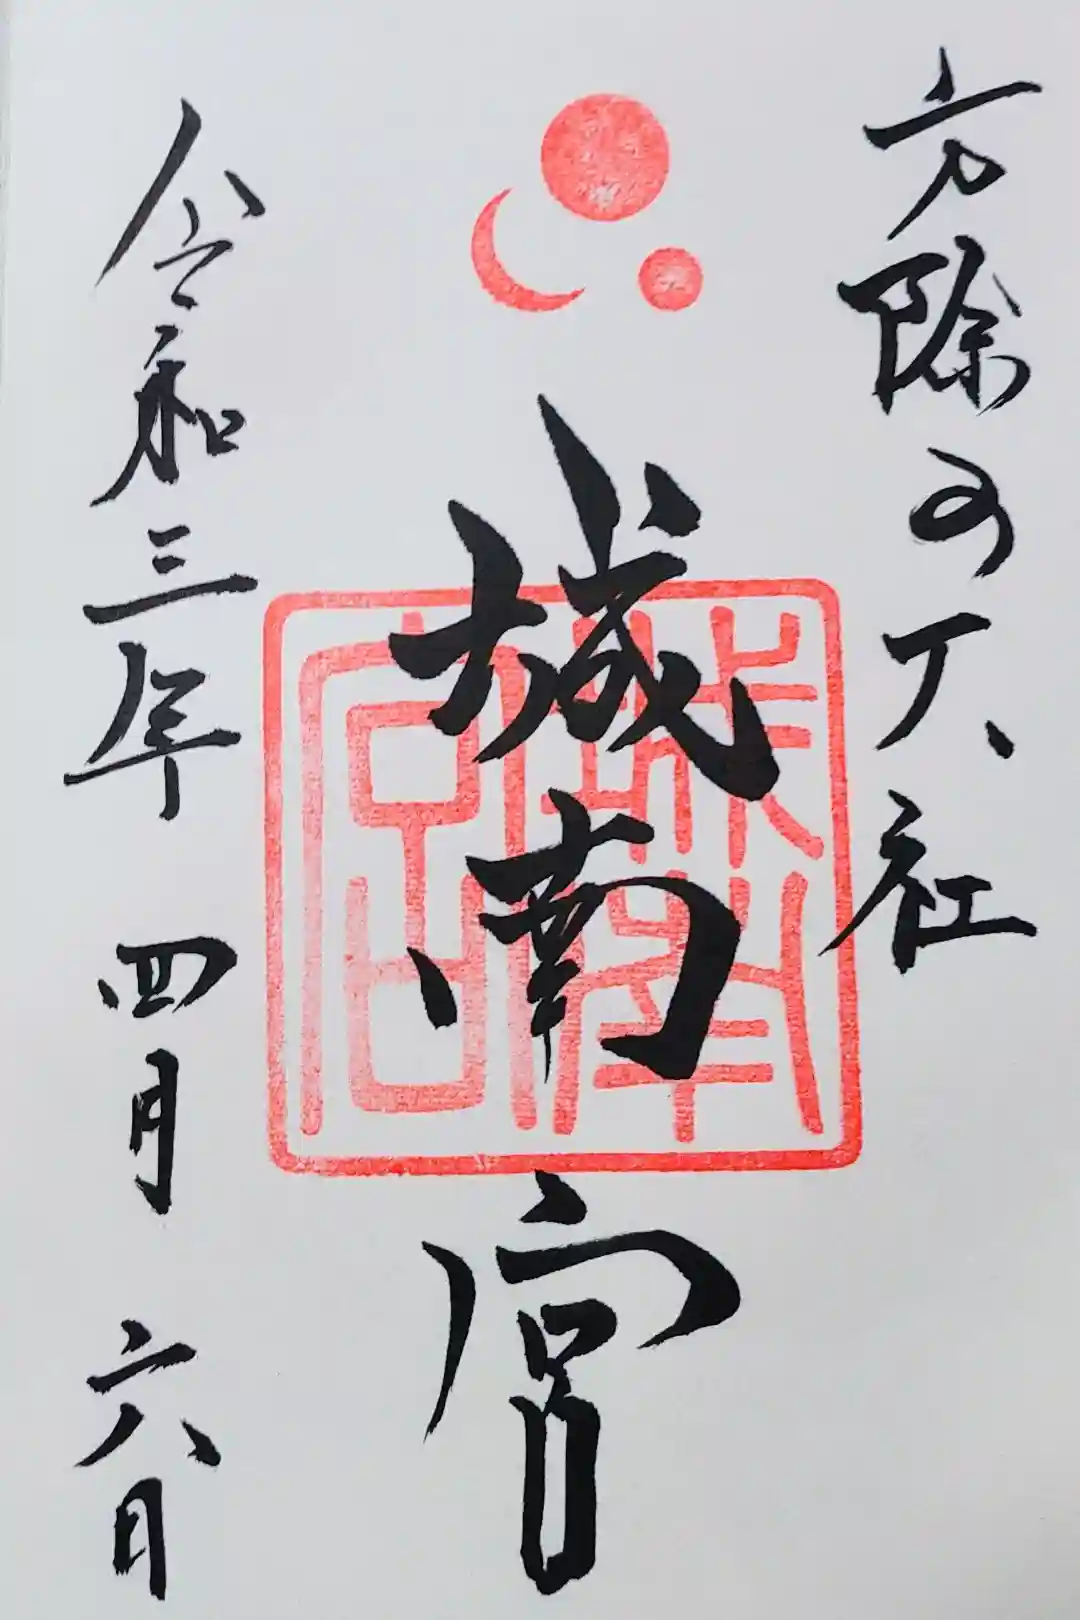 方除の大社
城南宮
城南宮
令和三年 四月 六日